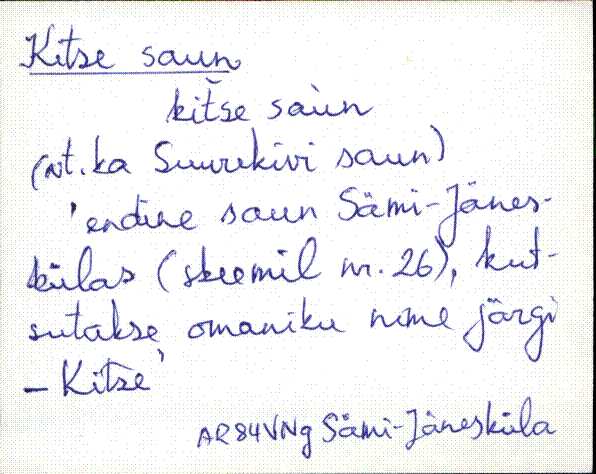 Kitse saun
kiťše saùn
(vt. ka Suurekivi saun)
'endine saun Sämi-Jänes-
külas (skeemil nr. 26), kut-
sutakse omaniku nime järgi
– Kitse'
AR84VNg Sämi-Jäneskŭla